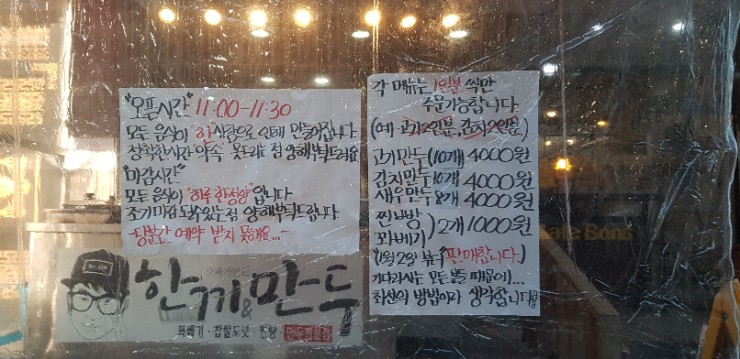 "오픈시간" 11:00-11:30
모든 음식이 "한"사람으로 인해 만들어집니다.
정확한시간 약속 못드리는 점 양해부탁드려요.
"마감시간"
모든 음식이 "하루 한정량"입니다.
조기마감 될수 있는 점 양해부탁드립니다.
당분간 예약 받지 못해요...
각 메뉴는 1인분씩만
주문가능합니다.
고기만두(10개) 4000원
김치만두 10개 4000원
새우만두 8개 4000원
찐빵
꽈배기 ) 2개 1000원
(1월 2일 부터 판매합니다.)
기다리시는 모든 분들 때문에...
최선의 방법이라 생각합니다
한끼&만두
꽈배기·찹쌀도넛·찐빵